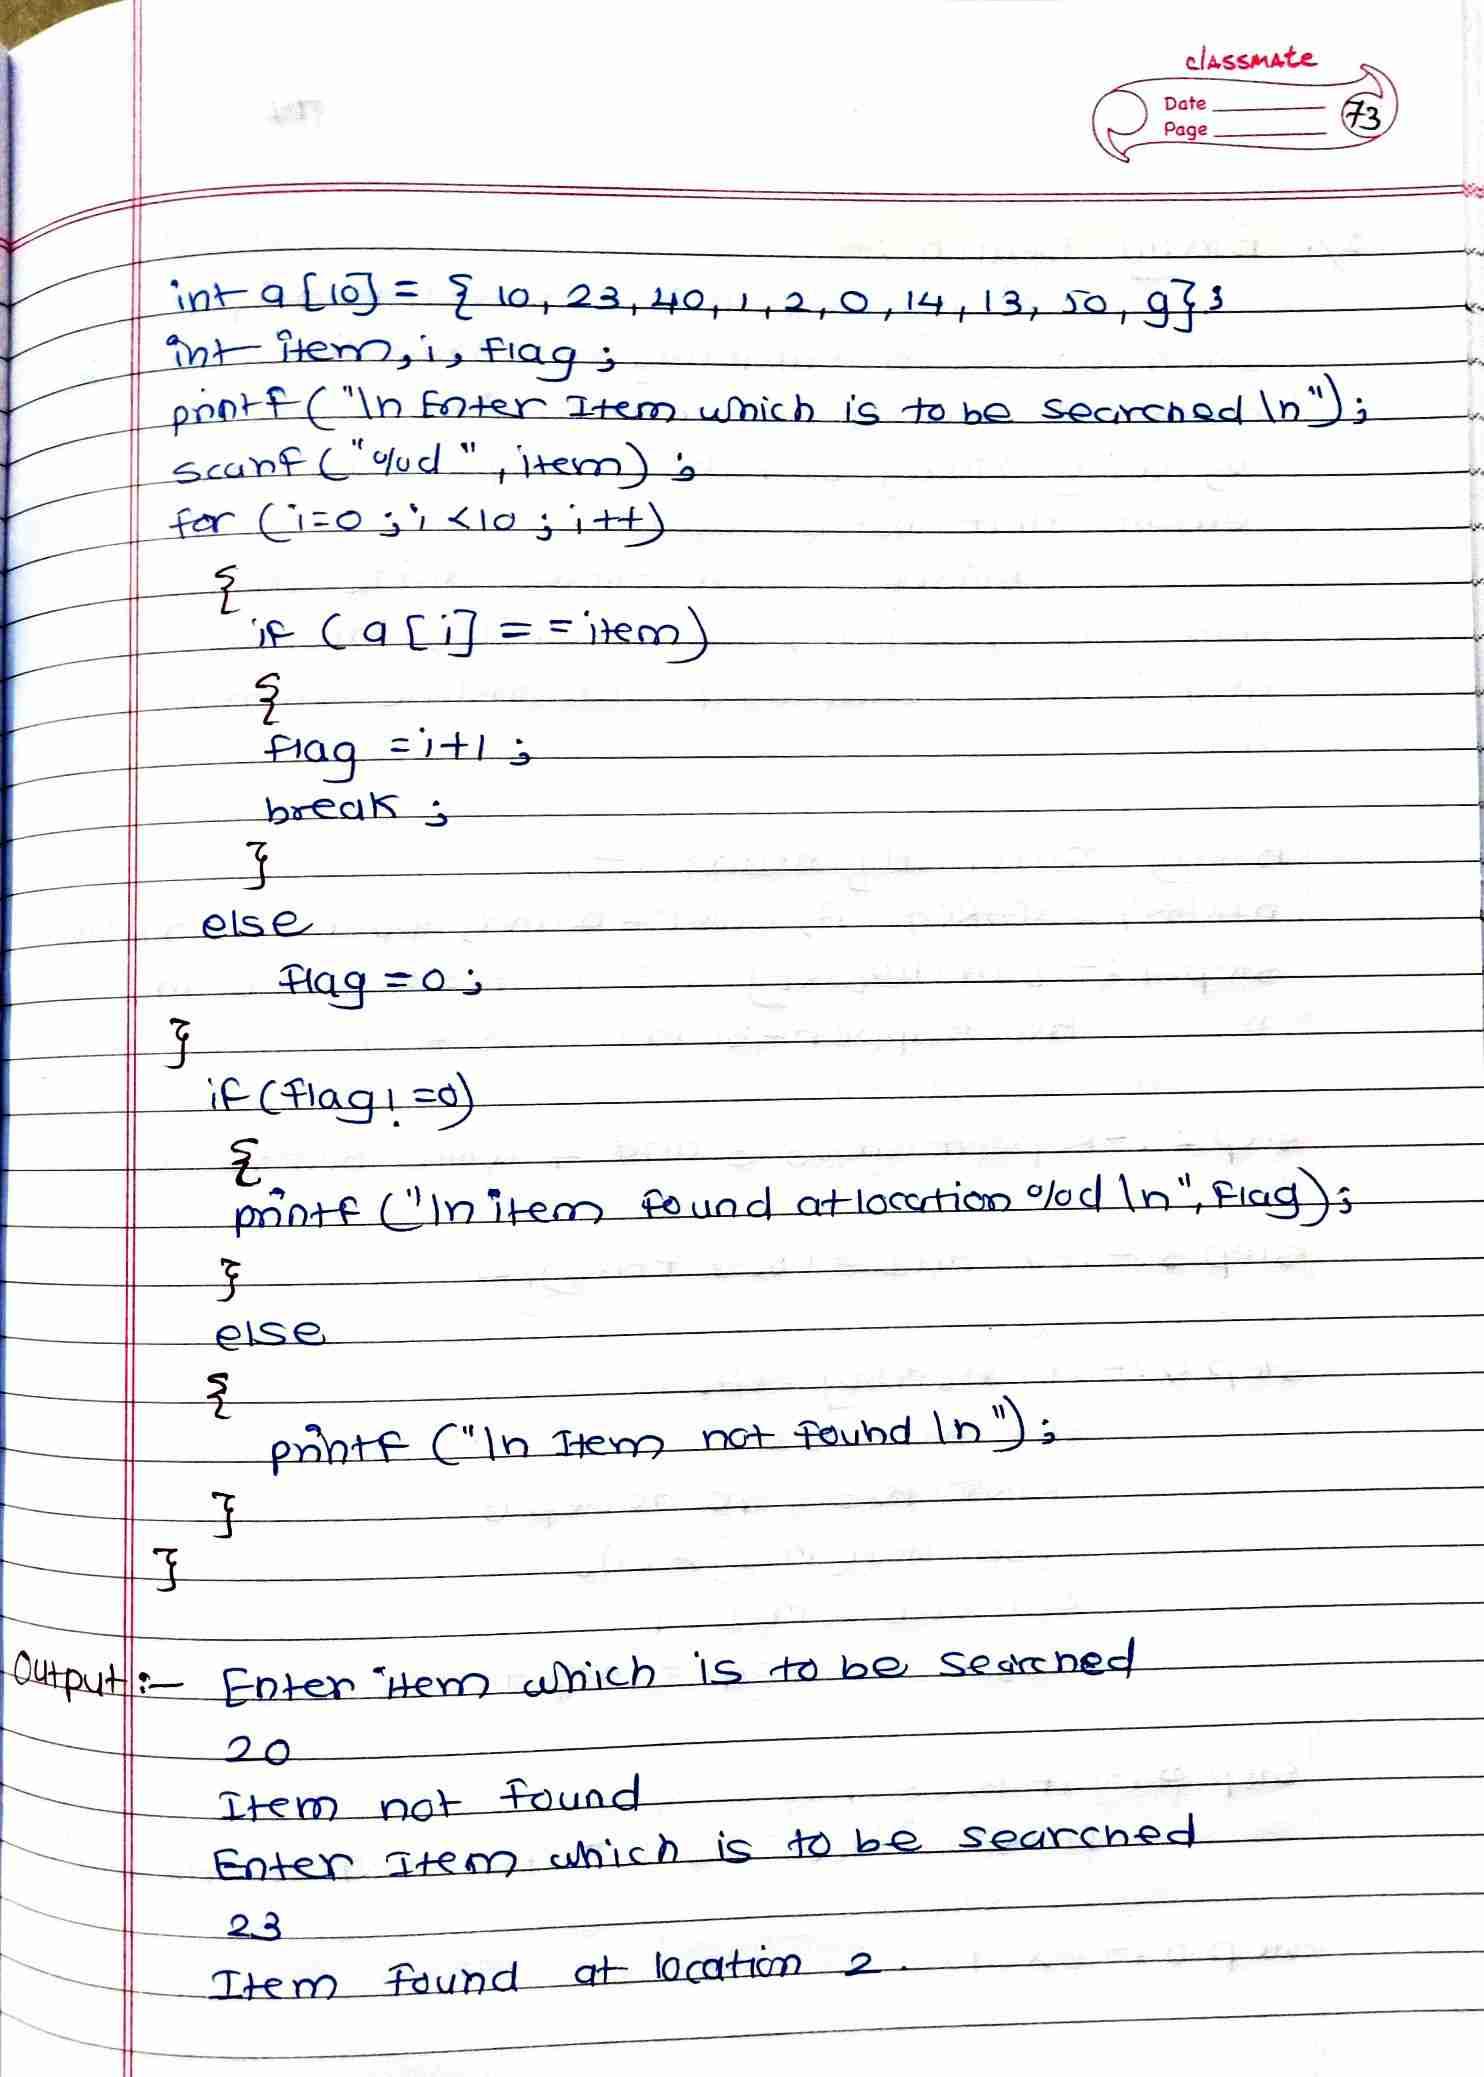 classmate
Date
Page
73
int a[10] = { 10, 23, 40, 1, 2, 0, 14, 13, 50, 9};
int item, i, flag ;
printf ("\n Enter Item which is to be searched \n");
scanf ("%d", item) ;
for (i=0 ; i <10 ; i++)
{
if (a[i] = = item)
{
flag = i+1 ;
break ;
}
else
flag = 0 ;
}
if (flag ! =0)
{
printf ("\n item found at location %d \n", flag) ;
}
else
{
printf ("\n Item not found \n") ;
}
}
Output :- Enter item which is to be searched
20
Item not found
Enter Item which is to be searched
23
Item found at location 2.